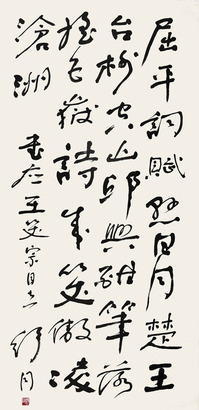 屈平詞賦懸日月楚王
台榭空山邱興酣筆落
搖五嶽詩成笑傲凌
滄洲 王宗同志 舒同